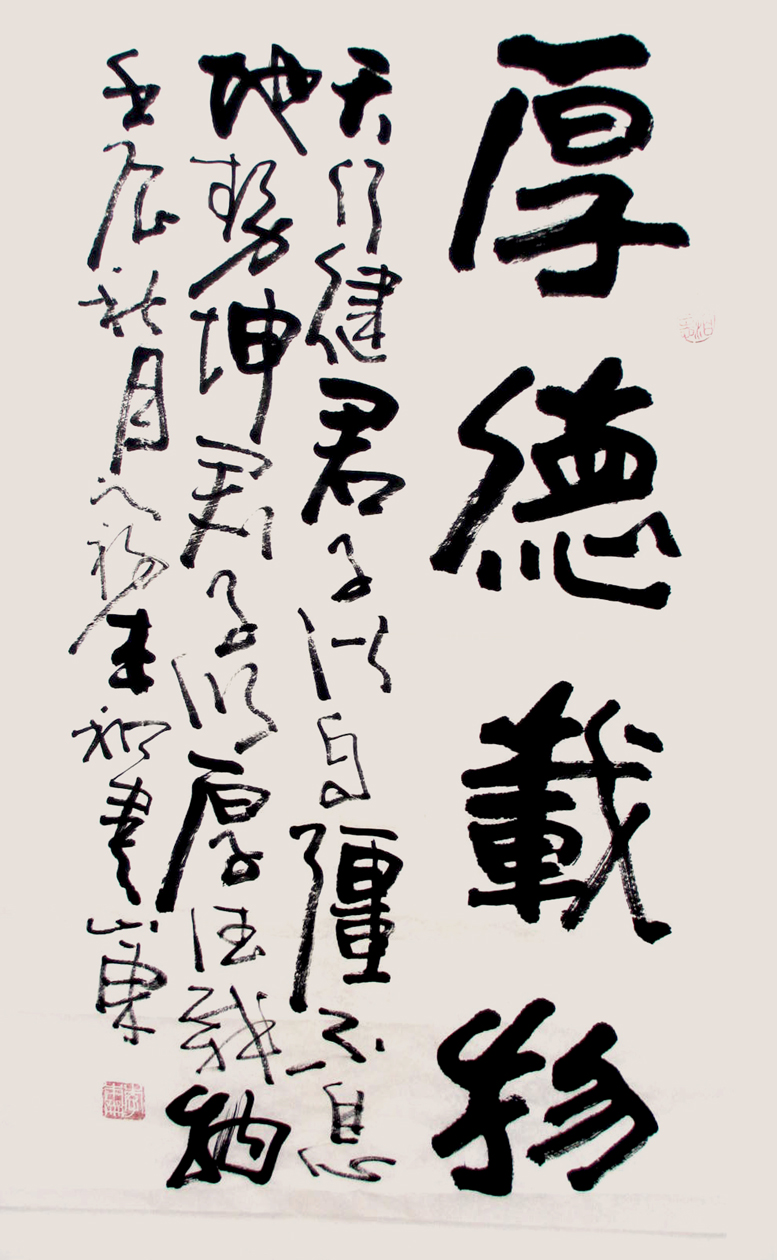 厚德載物
天行健君子以自彊不息
地勢坤君子以厚德載物
壬辰秋月書山東